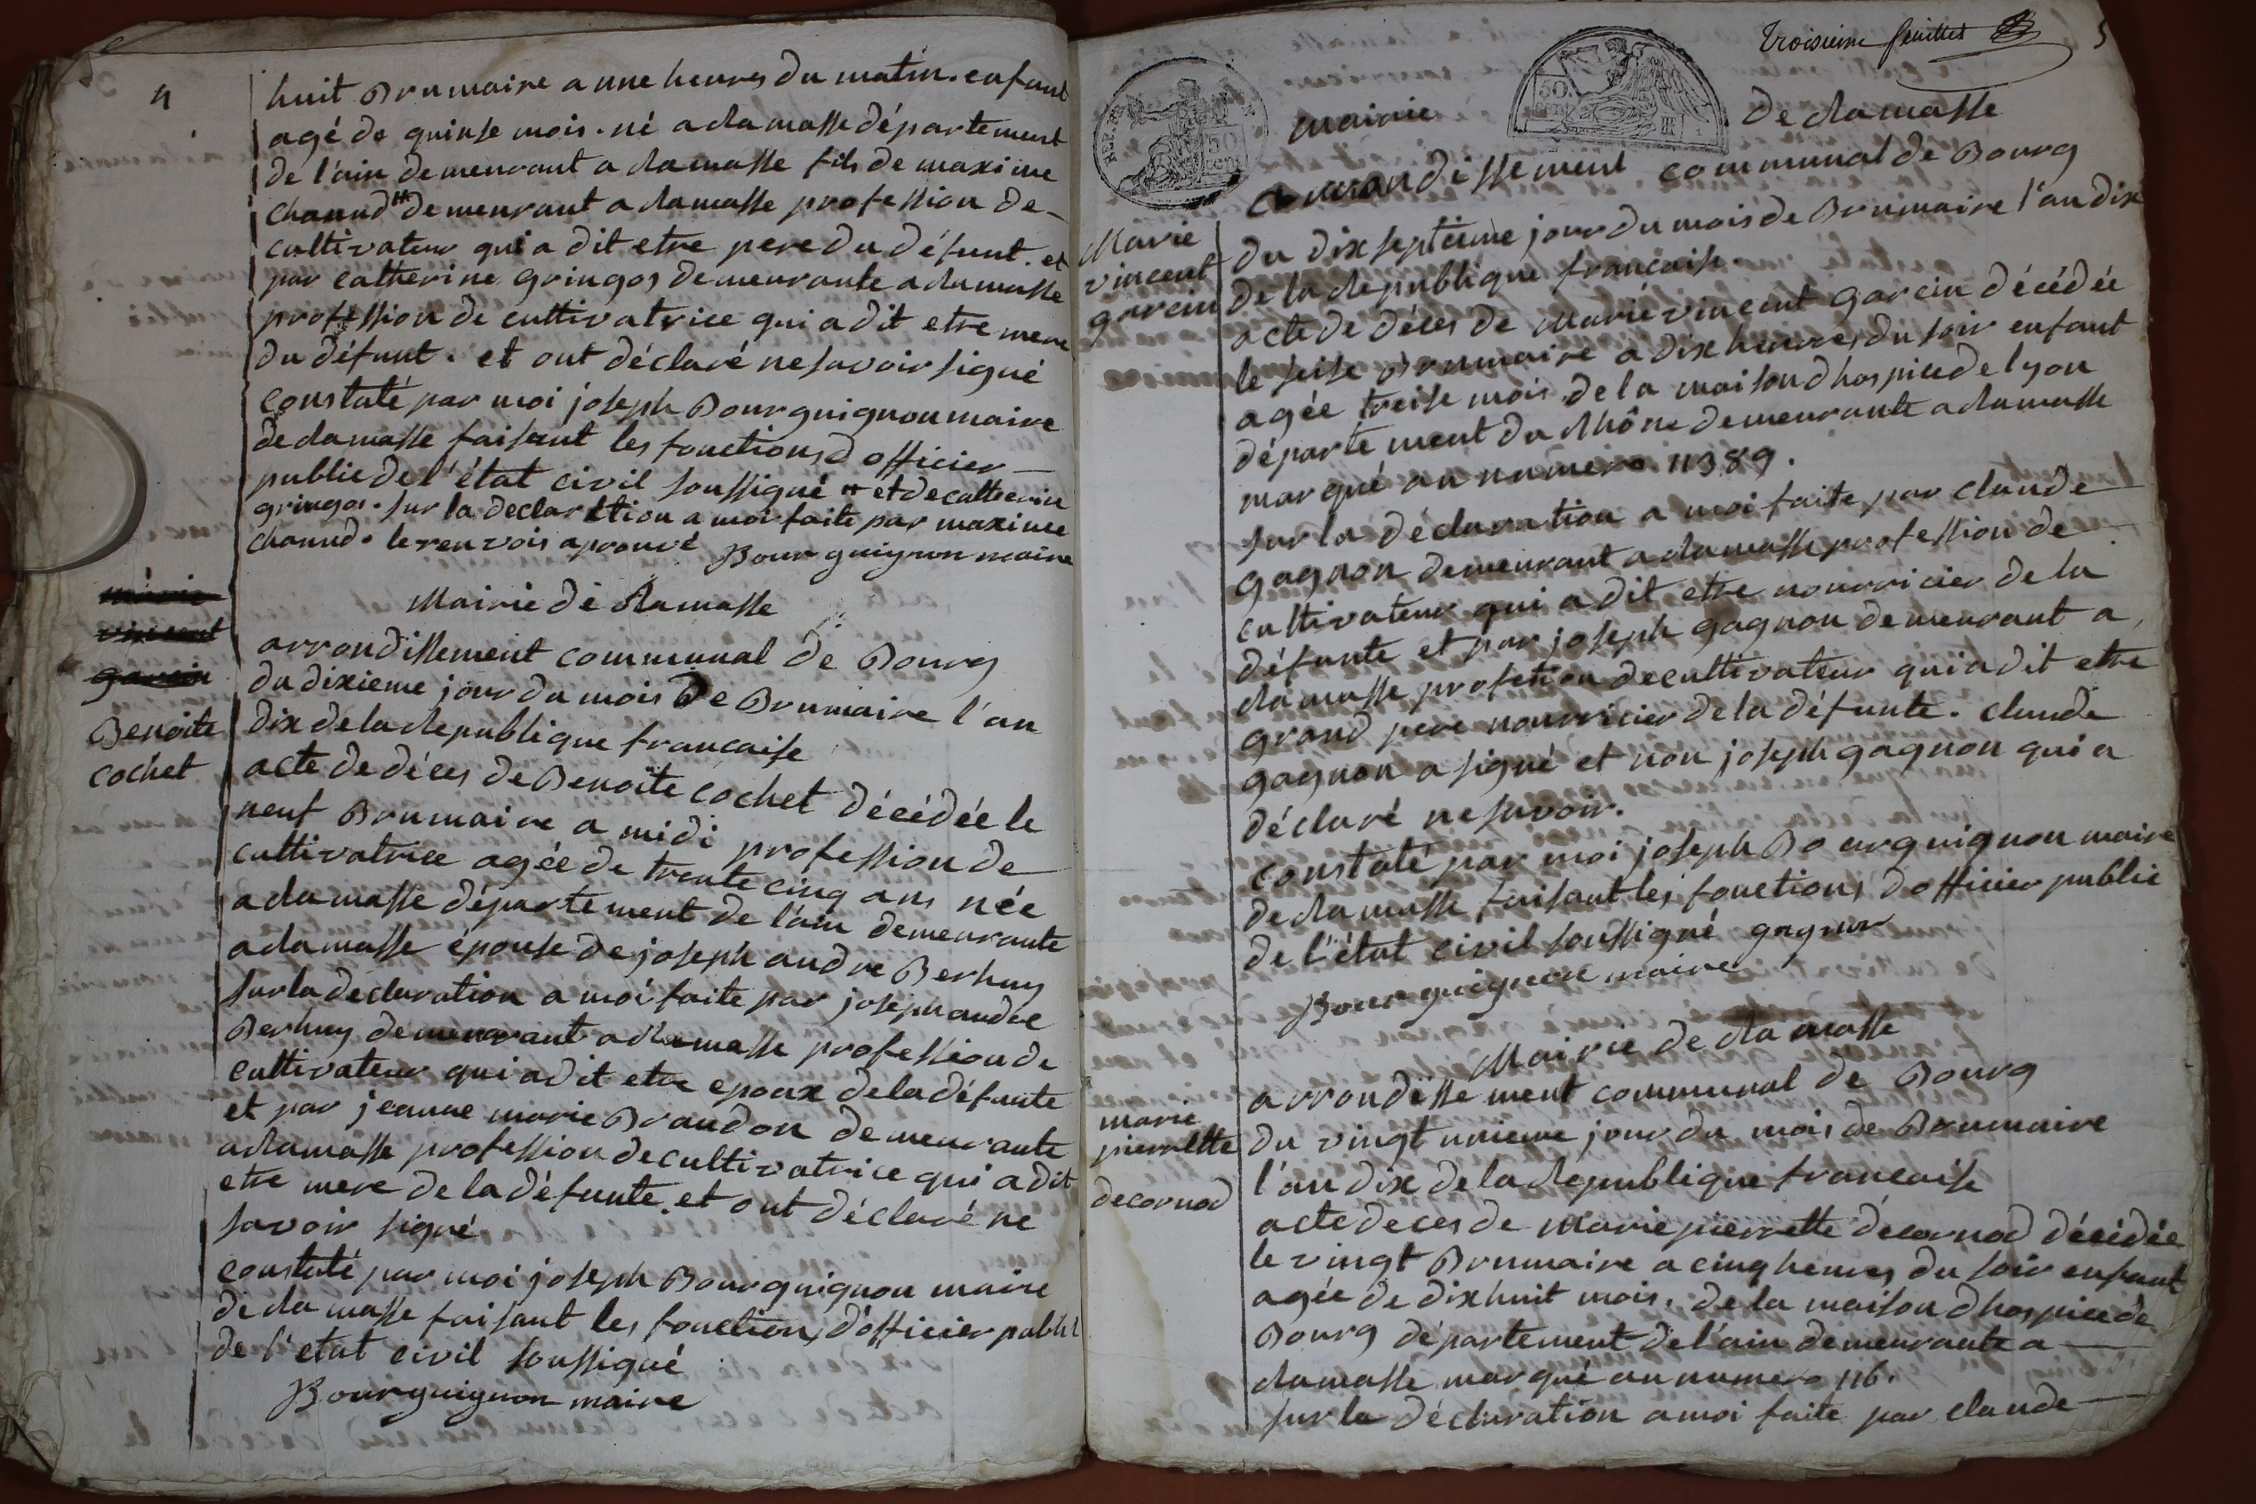 4
huit Brumaire a une heures du matin. enfant
agé de quinse mois. né a Ramasse département
de l'ain demeurant a Ramasse fils de maxime
chanud demeurant a Ramasse profession de
cultivateur qui a dit etre pere du défunt. et
par catherine gringos demeurante a Ramasse
profession de cultivatrice qui a dit etre mere
du défunt. et ont déclaré ne savoir signé
constaté par moi joseph Bourguignon maire
de Ramasse faisant les fonctions d officier
public de l'état civil soussigné # et de catherine
gringos. sur la declaration a moi faite par maxime
chanud. le renvois aprouvé Bourguignon maire
marie
vincent
garcin
Benoite
cochet
Mairie de Ramasse
arrondissement communal de Bourg
du dixieme jour du mois de Brumaire l'an
dix de la Republique francaise
acte de déces de Benoite cochet décédée le
neuf Brumaire a midi profession de
cultivatrice agée de trente cinq ans née
a Ramasse département de l'ain demeurante
a Ramasse épouse de joseph andre Berhuy
sur la declaration a moi faite par joseph andre
Berhuy demeurant a Ramasse profession de
cultivateur qui a dit etre epoux de la défunte
et par jeanne marie Brandon demeurante
a Ramasse profession de cultivatrice qui a dit
etre mere de la défunte. et ont déclaré ne
savoir signé
constaté par moi joseph Bourguignon maire
de Ramasse faisant les fonctions d'officier public
de l'etat civil soussigné
Bourguignon maire
Troisieme feuillet
5
mairie de Ramasse
arrondissement communal de Bourg
Marie
vincent
garcin
du dix septieme jour du mois de Brumaire l'an dix
de la Republique francaise.
acte de déces de Marie vincent garcin décédée
le seise Brumaire a dix heures du soir enfant
agée treise mois de la maison d hospice de lyon
département du Rhône demeurante a Ramasse
marqué au numero 11389.
sur la déclaration a moi faite par claude
gagnon demeurant a Ramasse profession de
cultivateur qui a dit etre nourricier de la
défunte et par joseph gagnon demeurant a
Ramasse profession de cultivateur qui a dit etre
grand pere nourricier de la défunte. claude
gagnon a signé et non joseph gagnon qui a
déclaré ne savoir.
constaté par moi joseph Bourguignon maire
de Ramasse faisant les fonctions d officier public
de l'état civil soussigné gagnon
Bourguignon maire
Mairie de Ramasse
arrondissement communal de Bourg
marie
pierrette
decornod
du vingt unieme jour du mois de Brumaire
l'an dix de la Republique francaise
acte deces de Marie pierrette decornod décédée
le vingt Brumaire a cinq heures du soir enfant
agée de dix huit mois. de la maison d hospice de
Bourg département de l'ain demeurante a
Ramasse marqué au numero 116.
sur la déclaration a moi faite par claude